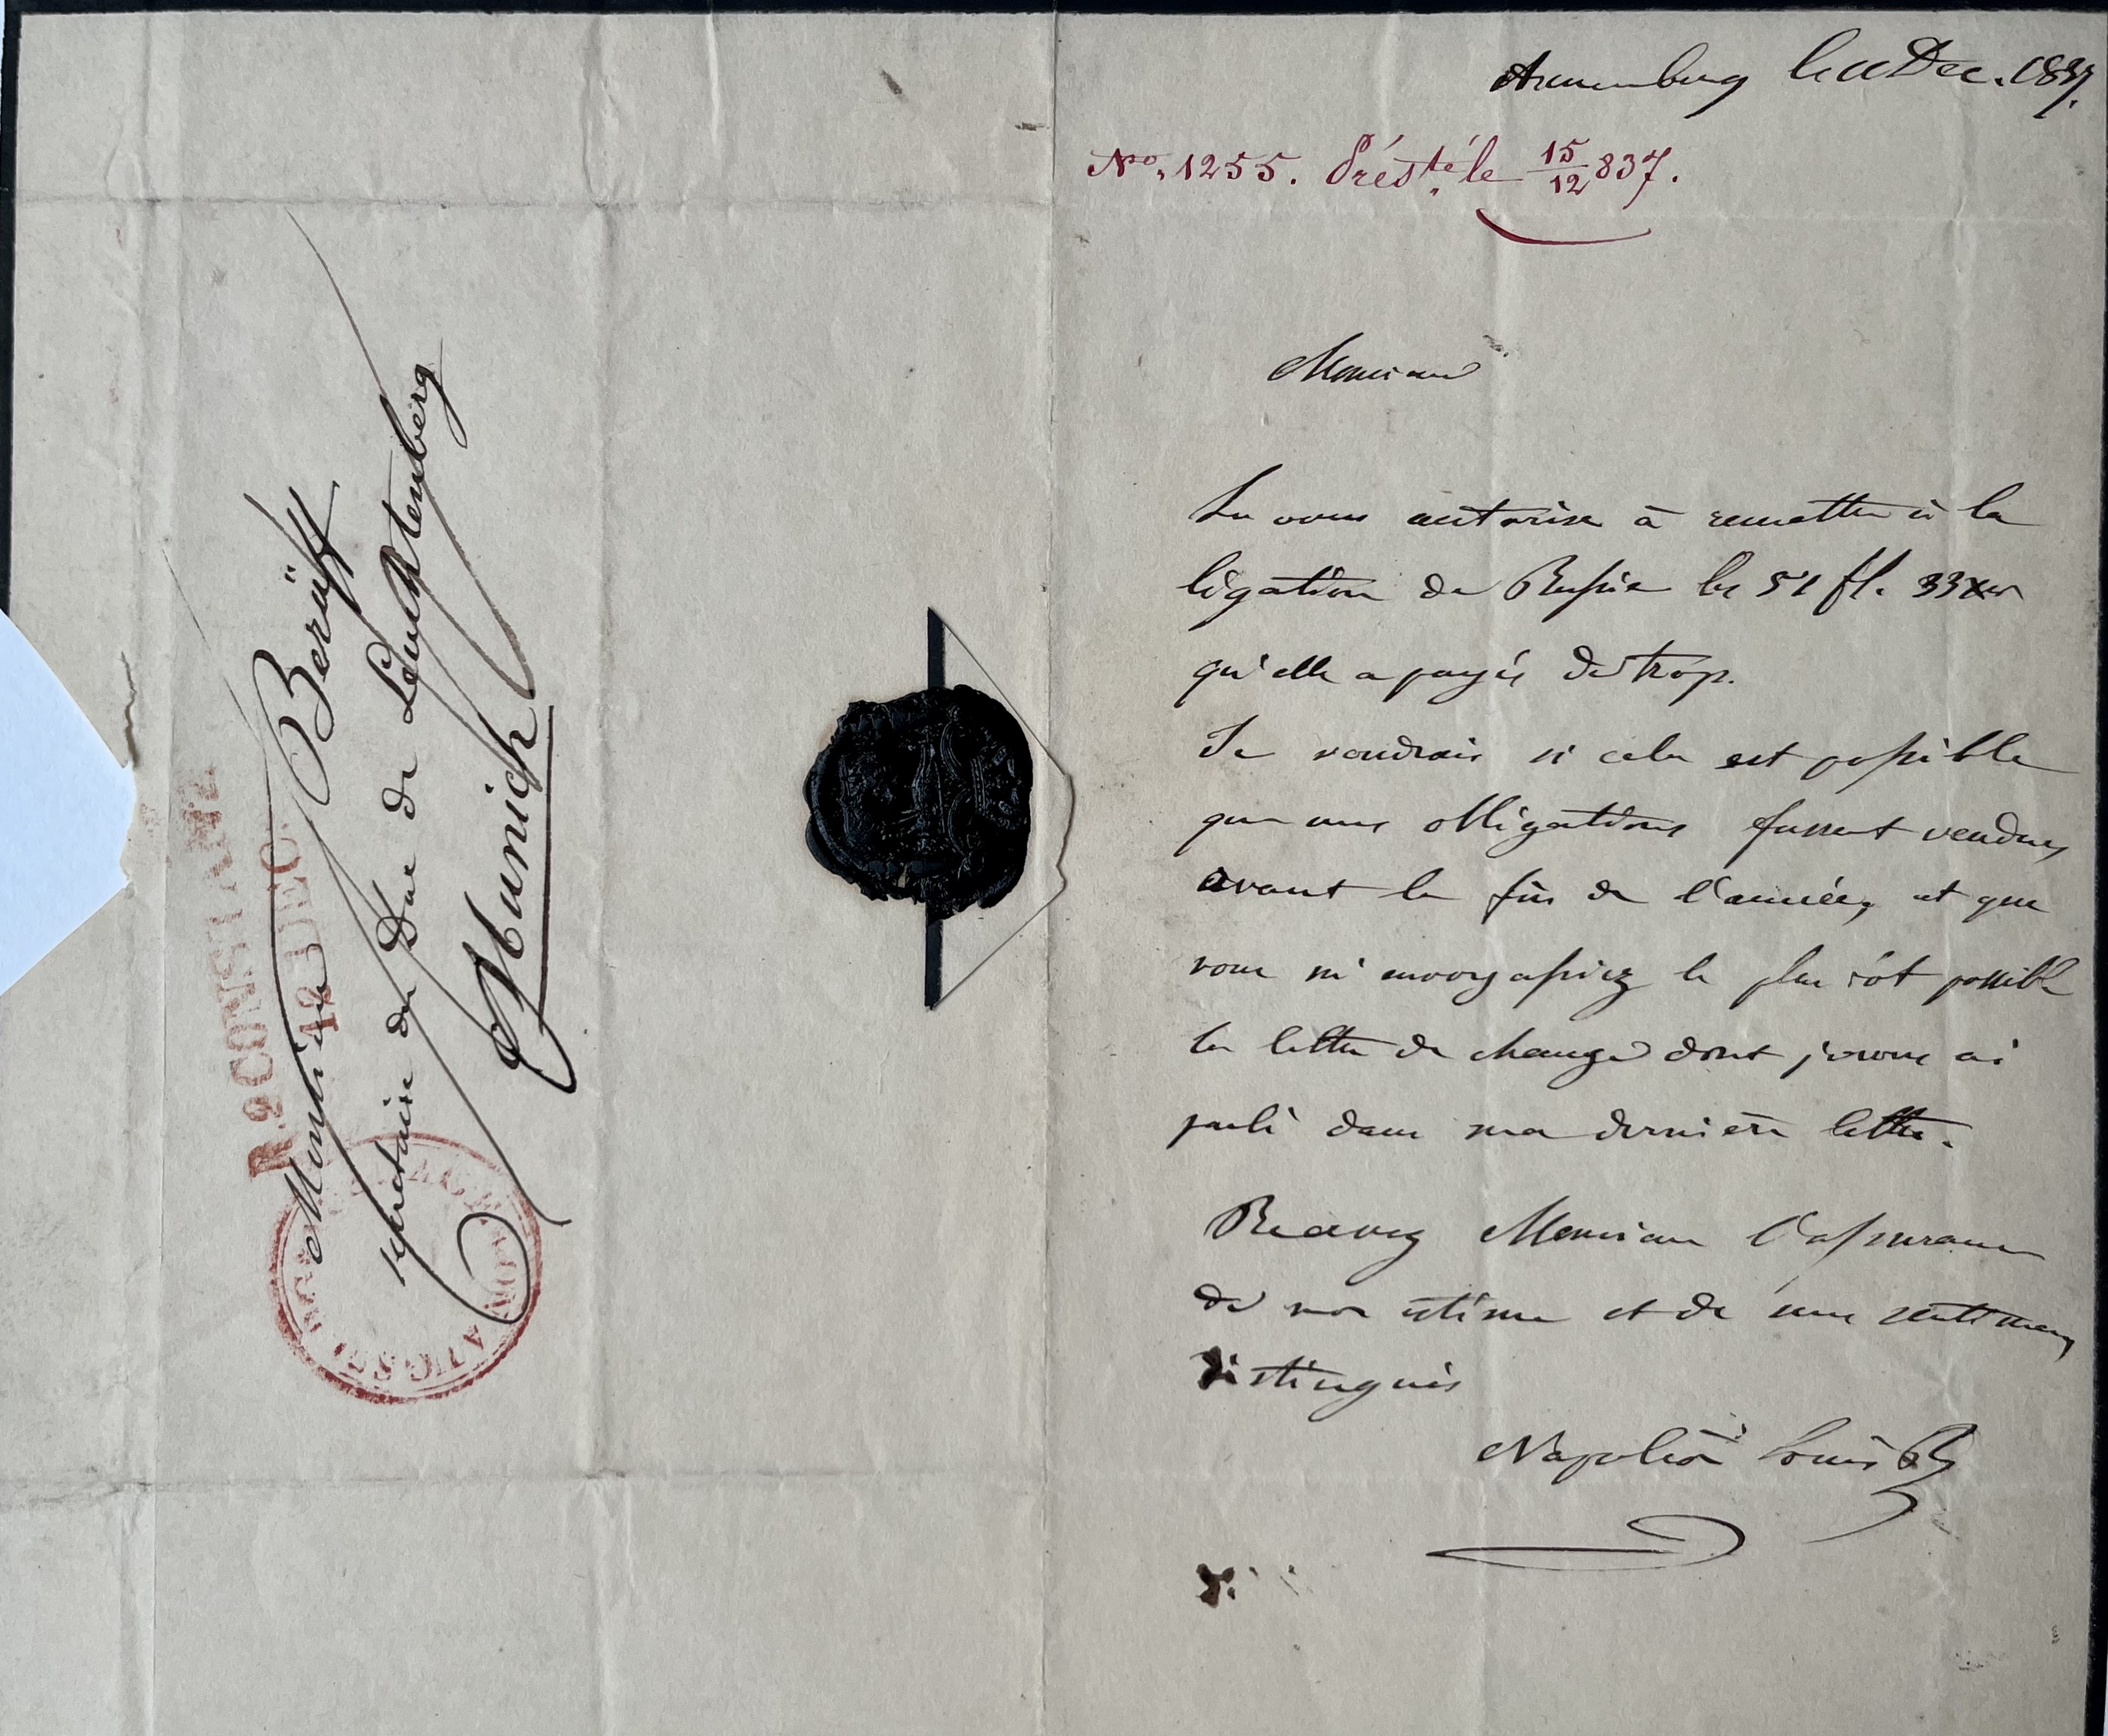 Arenenberg le 11 Dec. 1837.
No. 1255. Prést.é le 15/12 837.
Monsieur
Je vous autorise à remettre à la
légation de Russie les 51 fl. 33 xer
qu'elle a payés de trop.
Je voudrais si cela est possible
que mes obligations fussent vendues
avant la fin de l'année, et que
vous m'envoyassiez le plus tôt possible
la lettre de change dont je vous ai
parlé dans ma dernière lettre.
Recevez Monsieur l'assurance
de mon estime et de mes sentimens
distingués
Napoléon Louis B
Monsieur Berüff
secrétaire du Duc de Leuchtenberg
Munich
R.2 CONSTANZ
12 DEC.